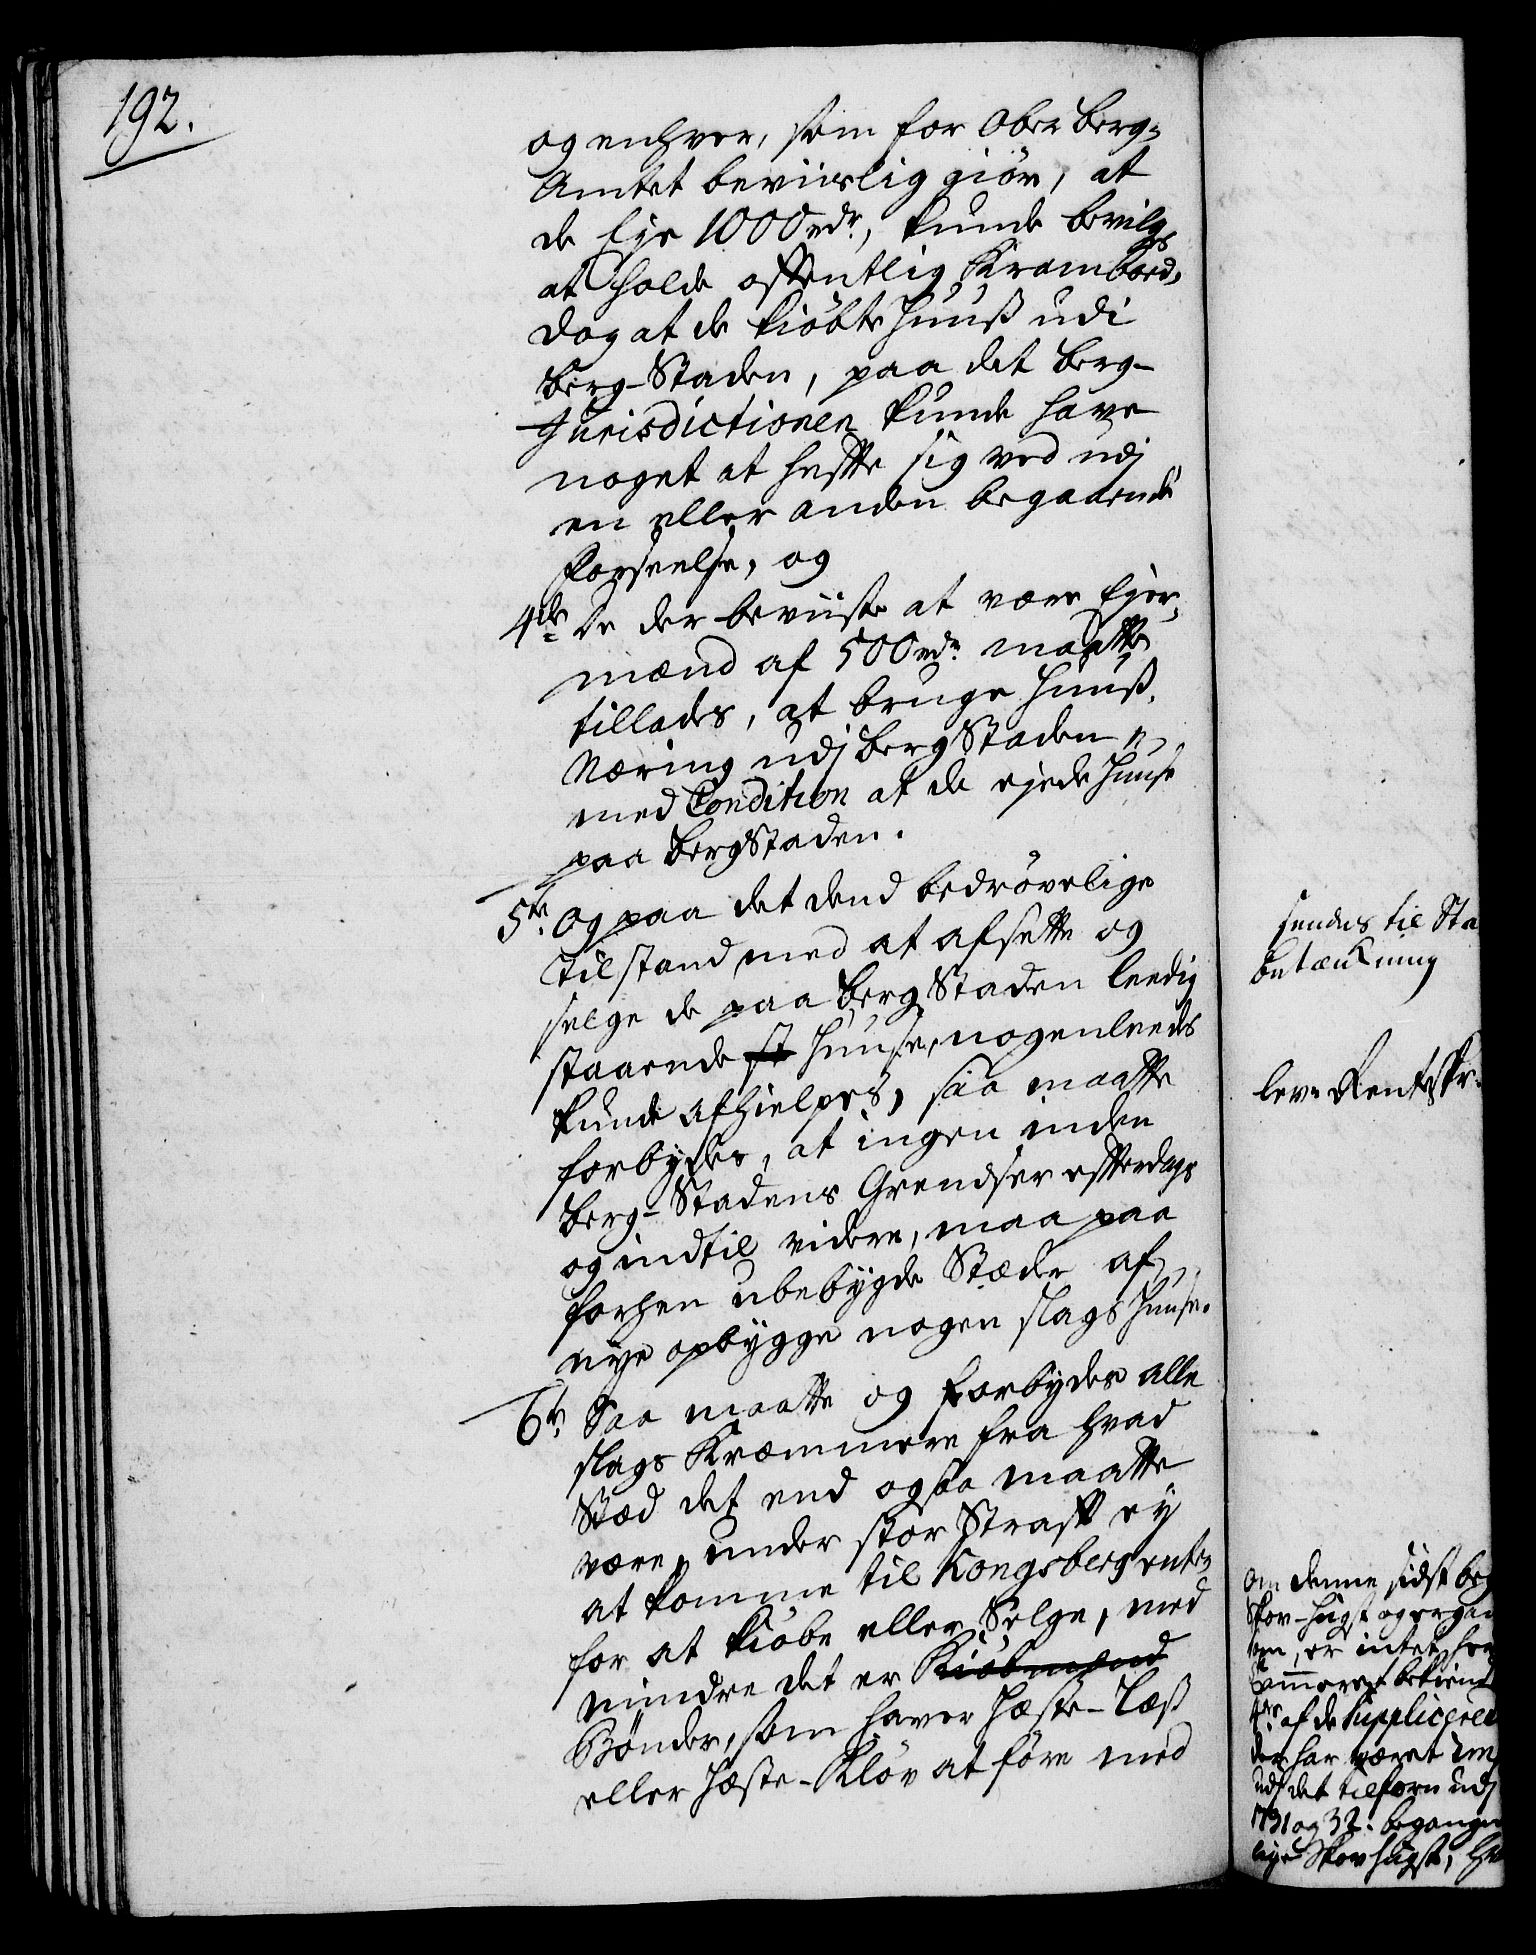 192.
og enhver, som for Ober Berg-
Amtet beviislig giör, at
de Eje 1000 rdr, kunde bevilges
at holde offentlig Krambod,
dog at de kiöbte Huuß udi
Berg-Staden, paa det Berg-
Jurisdictionen kunde have
noget at heffte sig ved udj
en eller anden begaaende
Forseelse, og
4de De der beviiste at være Ejer,,
mænd af 500 rdr maatte
tillades, at bruge Huuß,
Næring udj BergStaden
med Condition at de ejede Huuse
paa BergStaden.
5te Og paa det dend bedrövelige
Tilstand med at afsette og
selge de paa Berg Staden leedig
staaende Huuse, nogenleeds
kunde afhielpes, saa maatte
forbydes, at ingen inden
Berg-Stadens Grendser effterdags
og indtil videre, maa paa
forhen ubebygde Stæder af
nye opbygge nogen slags Huuse.
6te Saa maatte og forbydes alle
slags Kræmmere fra hvad
Stæd det end ogsaa maatte
være, under stor Straff ey
at komme til Kongsberg enten
for at kiöbe eller Selge, med
mindre det er Kiöbmænd
Bönder, som haver Hæste-Læß
eller Hæste-Klöv at före med
sendes til Sta
betænkning
lev. Rentskr.
Om denne sidst beg
Skov-Hugst og
om, er intet
4re af de Supplicere
der har været
udj det tilforn udj
1731 og 32. begangn
lige Skovhugst,